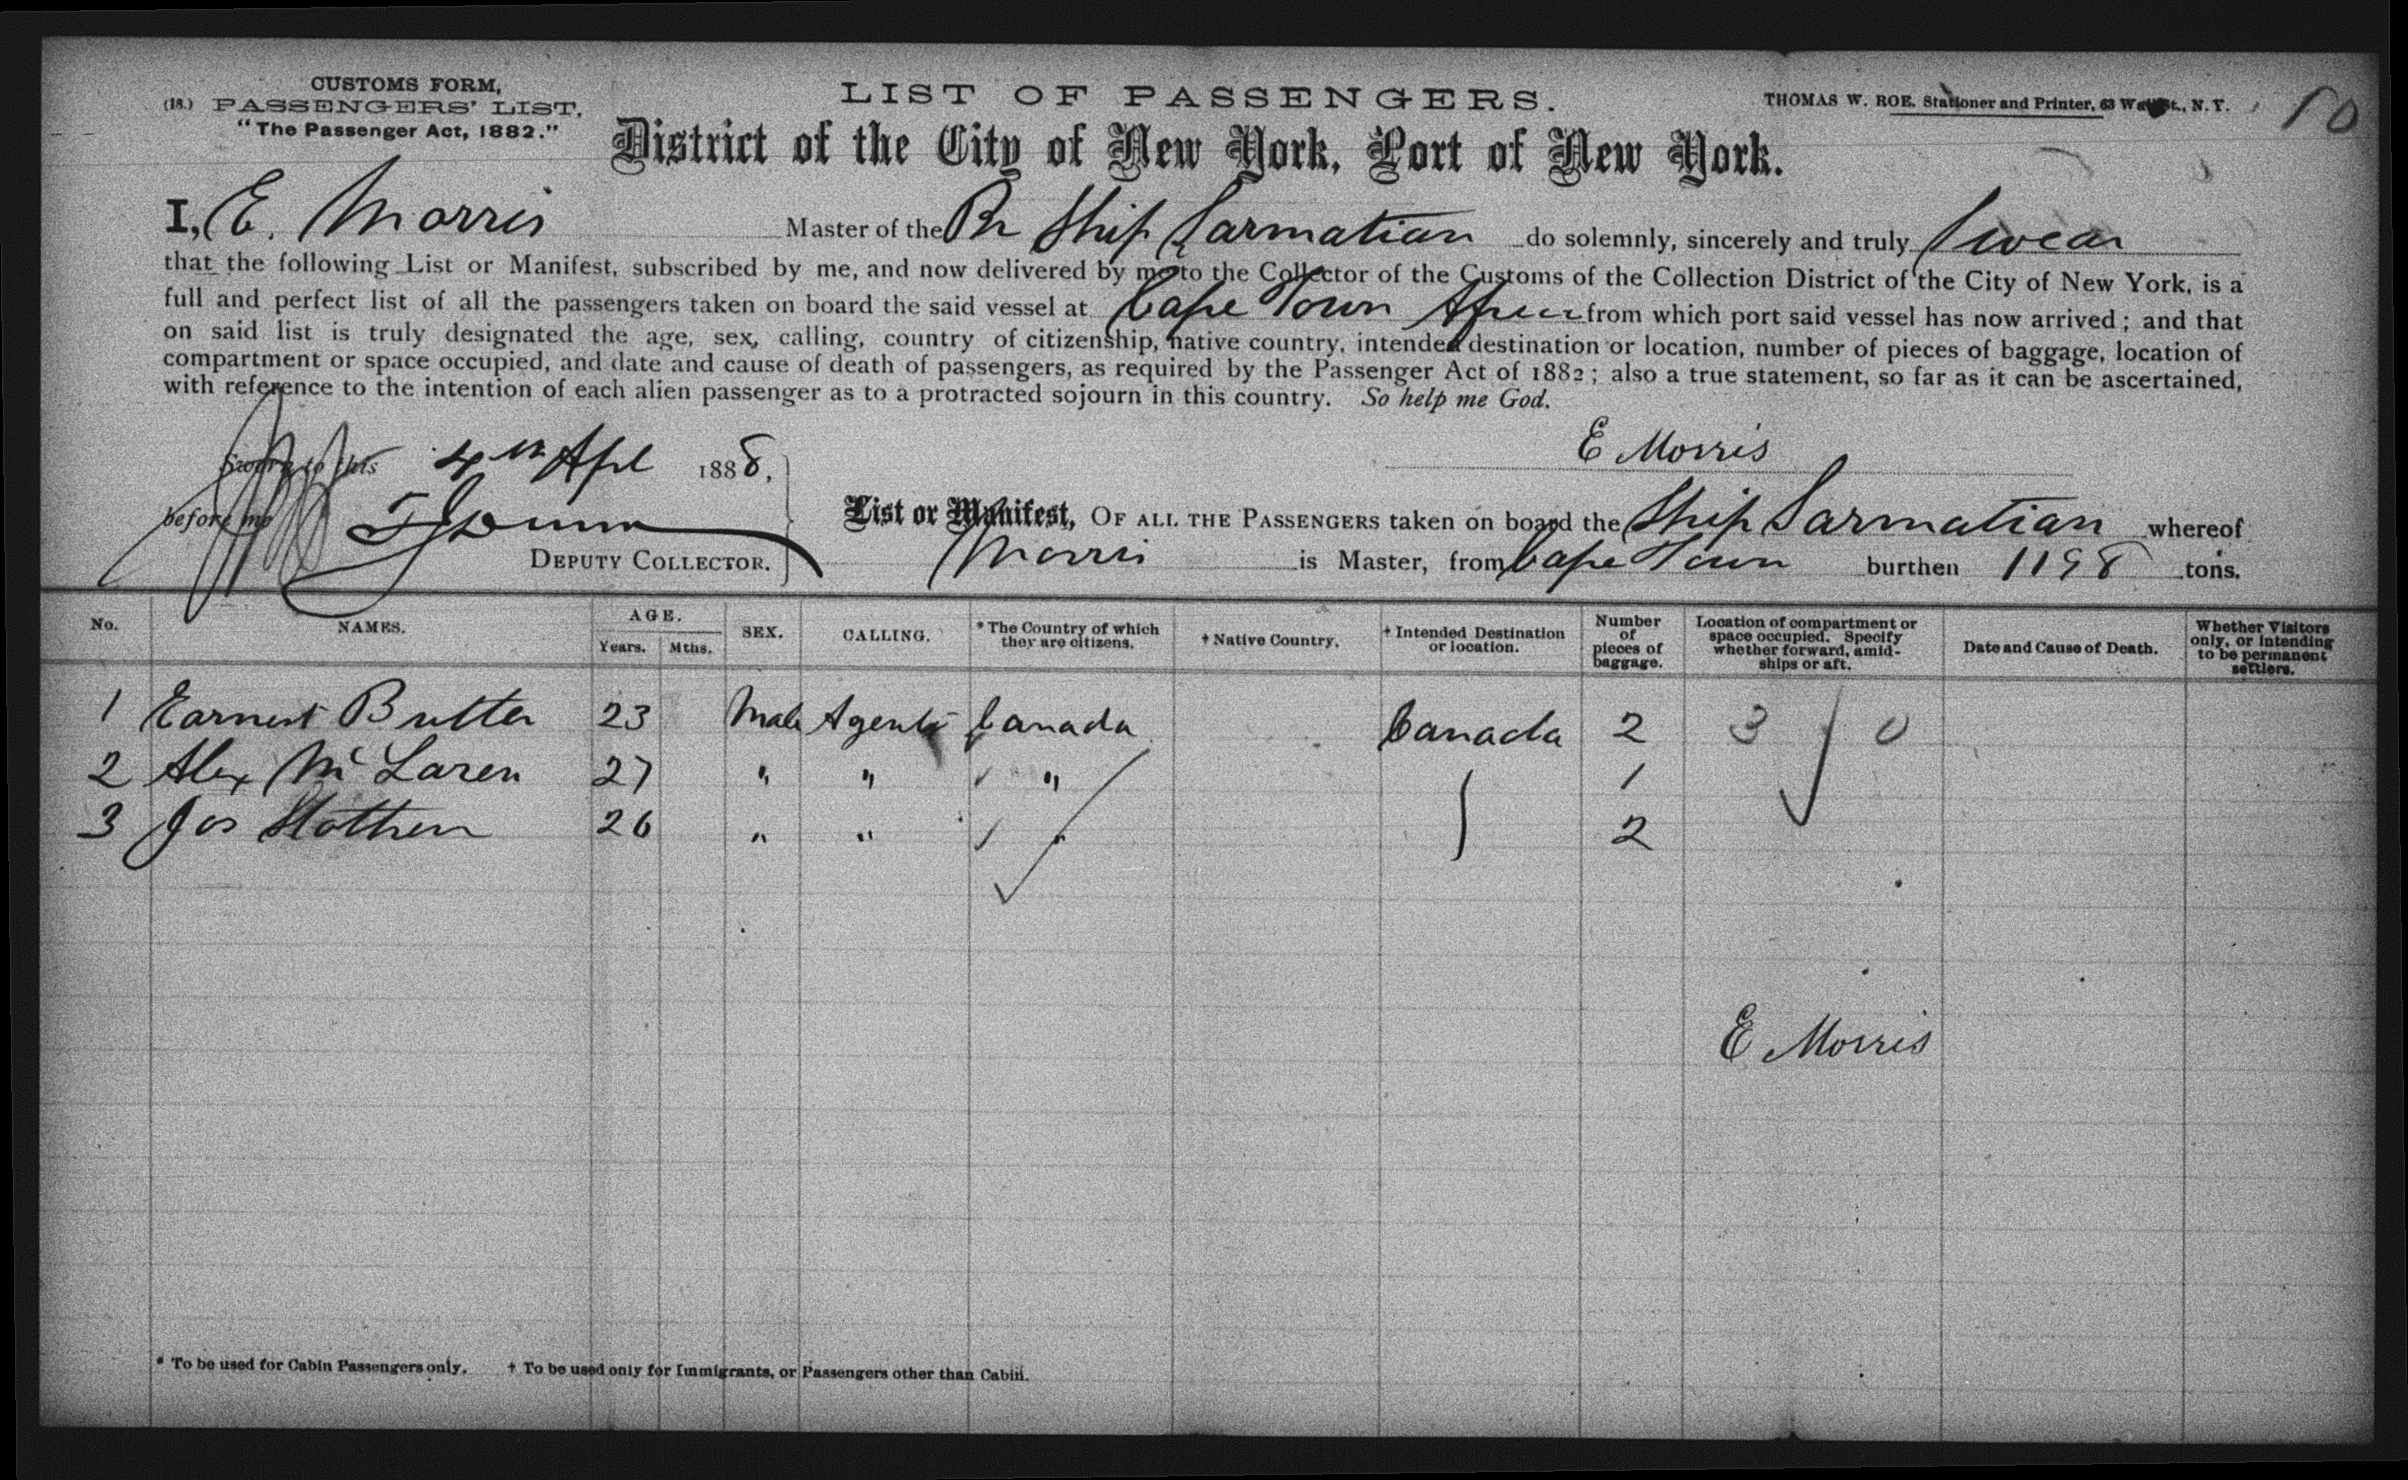 CUSTOMS FORM,
(18.) PASSENGERS' LIST,
"The Passenger Act, 1882."
LIST OF PASSENGERS.
THOMAS W. ROE, Stationer and Printer, 63 Wall St., N. Y.
10
District of the City of New York, Port of New York.
I, E. Morris Master of the Br Ship Sarmatian do solemnly, sincerely and truly Swear
that the following List or Manifest, subscribed by me, and now delivered by me to the Collector of the Customs of the Collection District of the City of New York, is a
full and perfect list of all the passengers taken on board the said vessel at Cape Town from which port said vessel has now arrived; and that
on said list is truly designated the age, sex, calling, country of citizenship, native country, intended destination or location, number of pieces of baggage, location of
compartment or space occupied, and date and cause of death of passengers, as required by the Passenger Act of 1882; also a true statement, so far as it can be ascertained,
with reference to the intention of each alien passenger as to a protracted sojourn in this country. So help me God.
Sworn to this 4th Apl 1888,
E Morris
before me
DEPUTY COLLECTOR.
List or Manifest, OF ALL THE PASSENGERS taken on board the Ship Sarmatian whereof
Morris is Master, from Cape Town burthen 1198 tons.
No. NAMES. AGE. Years. Mths. SEX. CALLING. * The Country of which they are citizens. † Native Country. † Intended Destination or location. Number of pieces of baggage. Location of compartment or space occupied. Specify whether forward, amidships or aft. Date and Cause of Death. Whether Visitors only, or intending to be permanent settlers.
1 Earnest Butter 23 Male Agents Canada Canada 2 3 0
2 Alex Mc Laren 27 " " " 1
3 Jos Stothern 26 " " " 2
E Morris
* To be used for Cabin Passengers only. † To be used only for Immigrants, or Passengers other than Cabin.